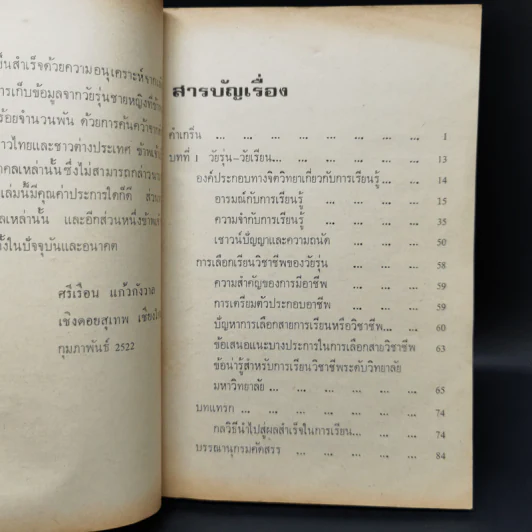 ป็นสำเร็จด้วยความอนุเคราะห์จาก
ารเก็บข้อมูลจากวัยรุ่นชายหญิงที่
ร้อยจำนวนพัน ด้วยการค้นคว้าจาก
าวไทยและชาวต่างประเทศ ข้าพเจ้า
าคลเหล่านั้น ซึ่งไม่สามารถกล่าว
เล่มนี้มีคุณค่าประการใดก็ดี ส่วน
ลเหล่านั้น และอีกส่วนหนึ่งข้าพ
ทั้งในปัจจุบันและอนาคต
ศรีเรือน แก้วกังวาล
เชิงดอยสุเทพ
กุมภาพันธ์ 2522
สารบัญเรื่อง
คำเกริ่น ... ... ... ... ... ... ... 1
บทที่ 1 วัยรุ่น-วัยเรียน... ... ... ... ... ... 13
องค์ประกอบทางจิตวิทยาเกี่ยวกับการเรียนรู้... ... ... 14
อารมณ์กับการเรียนรู้ ... ... ... ... 15
ความจำกับการเรียนรู้ ... ... ... ... 35
เชาวน์ปัญญาและความถนัด ... ... ... ... 50
การเลือกเรียนวิชาชีพของวัยรุ่น ... ... ... ... 58
ความสำคัญของการมีอาชีพ ... ... ... ... 59
การเตรียมตัวประกอบอาชีพ ... ... ... ... 59
ปัญหาการเลือกสายการเรียนหรือวิชาชีพ... ... ... 60
ข้อเสนอแนะบางประการในการเลือกสายวิชาชีพ ... 63
ข้อน่ารู้สำหรับการเรียนวิชาชีพระดับวิทยาลัย
มหาวิทยาลัย ... ... ... ... ... ... 65
บทแทรก ... ... ... ... ... ... 74
กลวิธีนำไปสู่ผลสำเร็จในการเรียน... ... ... ... 74
บรรณานุกรมคัดสรร ... ... ... ... ... 84